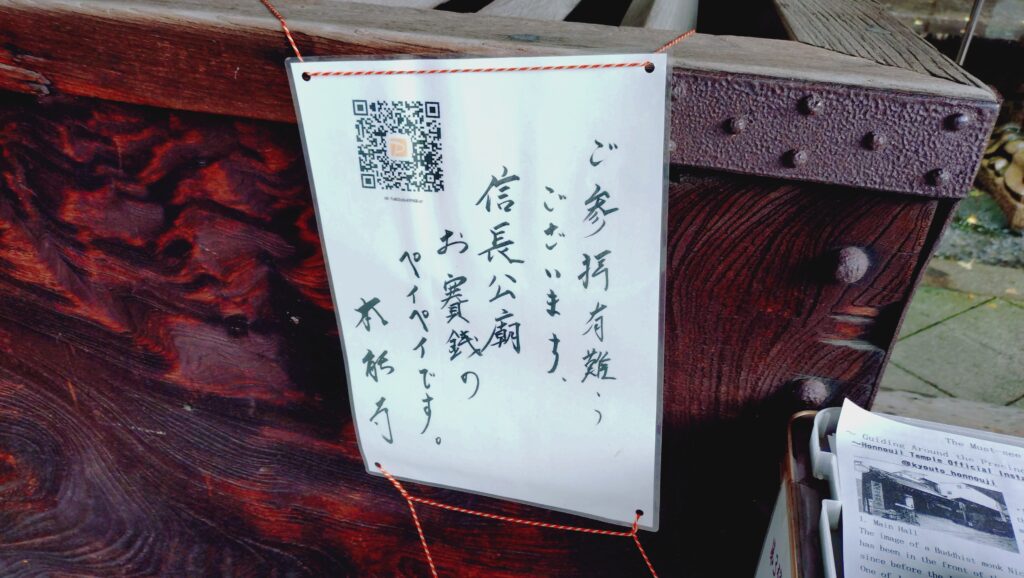 ご参拝有難う
ございます、
信長公廟
お賽銭の
ペイペイです。
本能寺
The Must-see
~ Guiding Around the Precin
~Honnouji Temple Official Insta
@kyouto_honnouji
1. Main Hall
The image of a Buddhist monk Nic
has been in the front of th
since before the
One of